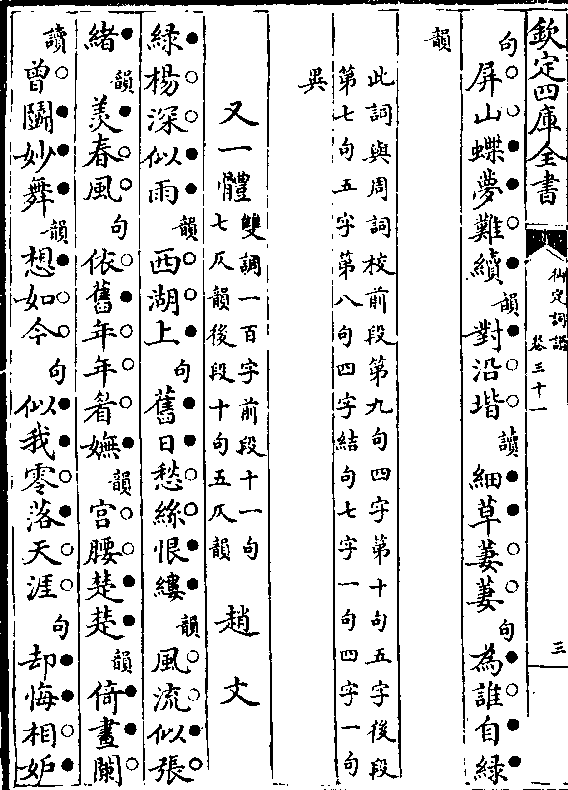 欽定四庫全書
御定詞譜
卷三十一
三
句屏山蝶夢難續韻對沿堦讀細草萋萋句為誰自綠
韻
此詞與周詞校前段第九句四字第十句五字後段
第七句五字第八句四字結句七字一句四字一句
異
又一體雙調一百字前段十一句
七仄韻後段十句五仄韻
趙文
綠楊深似雨韻西湖上句舊日愁絲恨縷韻風流似張
緒韻羨春風句依舊年年眉嫵韻宮腰楚楚韻倚畫闌
讀曾鬬妙舞韻想如今句似我零落天涯句却悔相妒